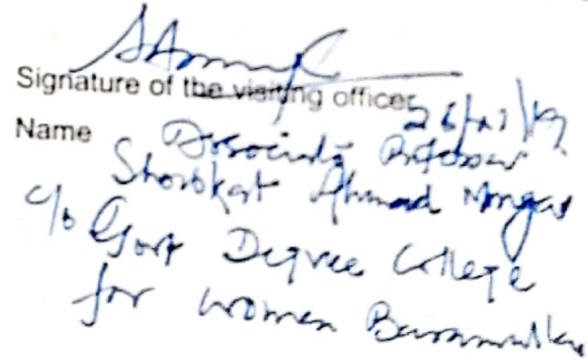 Signature of the visiting officer
26/11/19
Name Associate Professor
Showkat Ahmad
C/o Govt Degree College
for women Baramulla